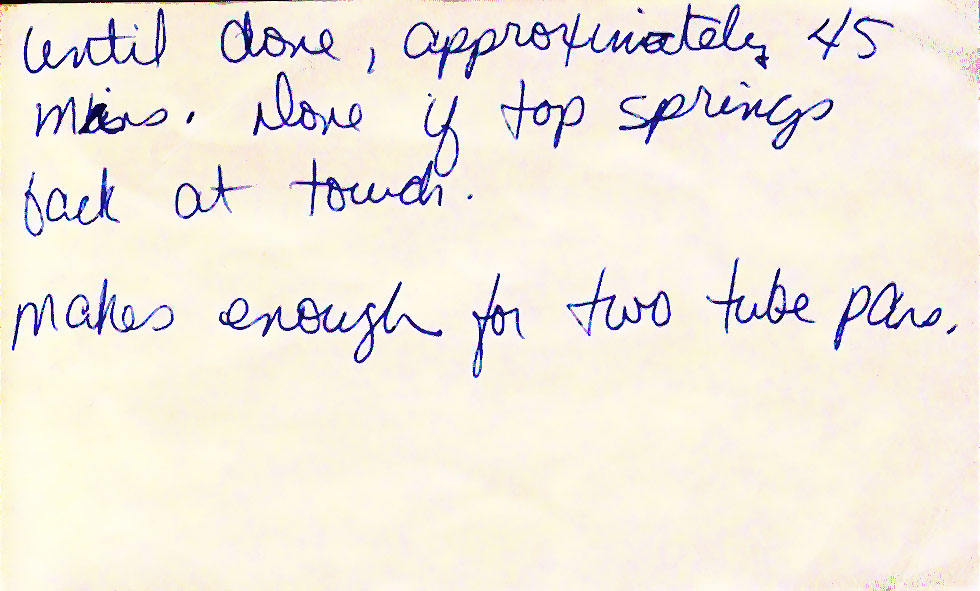 until done, approximately 45
mins. Done if top springs
back at touch.
Makes enough for two tube pans.